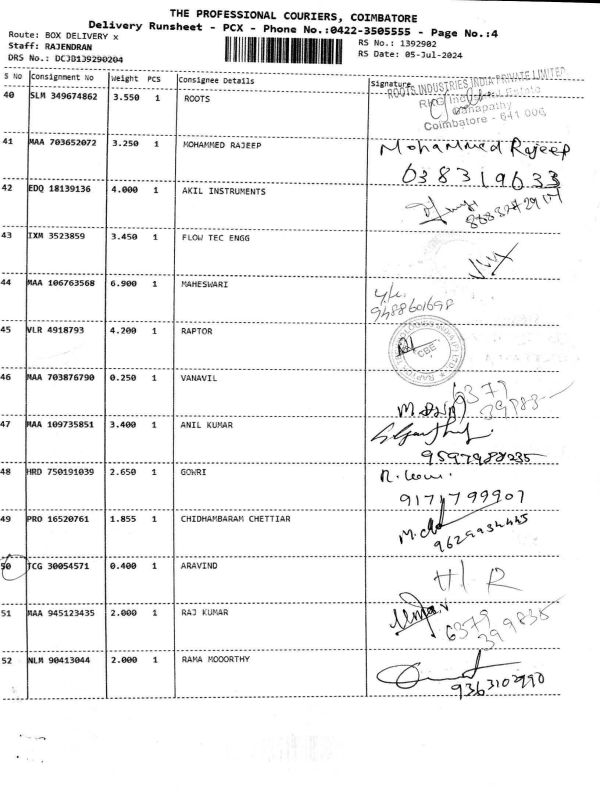 THE PROFESSIONAL COURIERS, COIMBATORE
Delivery Runsheet - PCX - Phone No.:0422-3505555 - Page No.:4
Route: BOX DELIVERY x
RS No.: 1392902
Staff: RAJENDRAN
RS Date: 05-Jul-2024
DRS No.: DCJB139290204
S No Consignment No Weight PCS Consignee Details Signature
ROOTS INDUSTRIES INDIA PRIVATE LIMITED
40 SLM 349674862 3.550 1 ROOTS
Ganapathy
Coimbatore - 641 006
41 MAA 703652072 3.250 1 MOHAMMED RAJEEP Mohammed Rajeep
638319633
42 EDQ 18139136 4.000 1 AKIL INSTRUMENTS
43 IXM 3523859 3.450 1 FLOW TEC ENGG
44 MAA 106763568 6.900 1 MAHESWARI
9488601698
45 VLR 4918793 4.200 1 RAPTOR
CBE
46 MAA 703876790 0.250 1 VANAVIL
6379
39983
47 MAA 109735851 3.400 1 ANIL KUMAR
9597988235
48 HRD 750191039 2.650 1 GOWRI
9171799907
49 PRO 16520761 1.855 1 CHIDHAMBARAM CHETTIAR
9629934445
50 TCG 30054571 0.400 1 ARAVIND H/R
51 MAA 945123435 2.000 1 RAJ KUMAR
6379
399835
52 NLM 90413044 2.000 1 RAMA MOOORTHY
9363102990